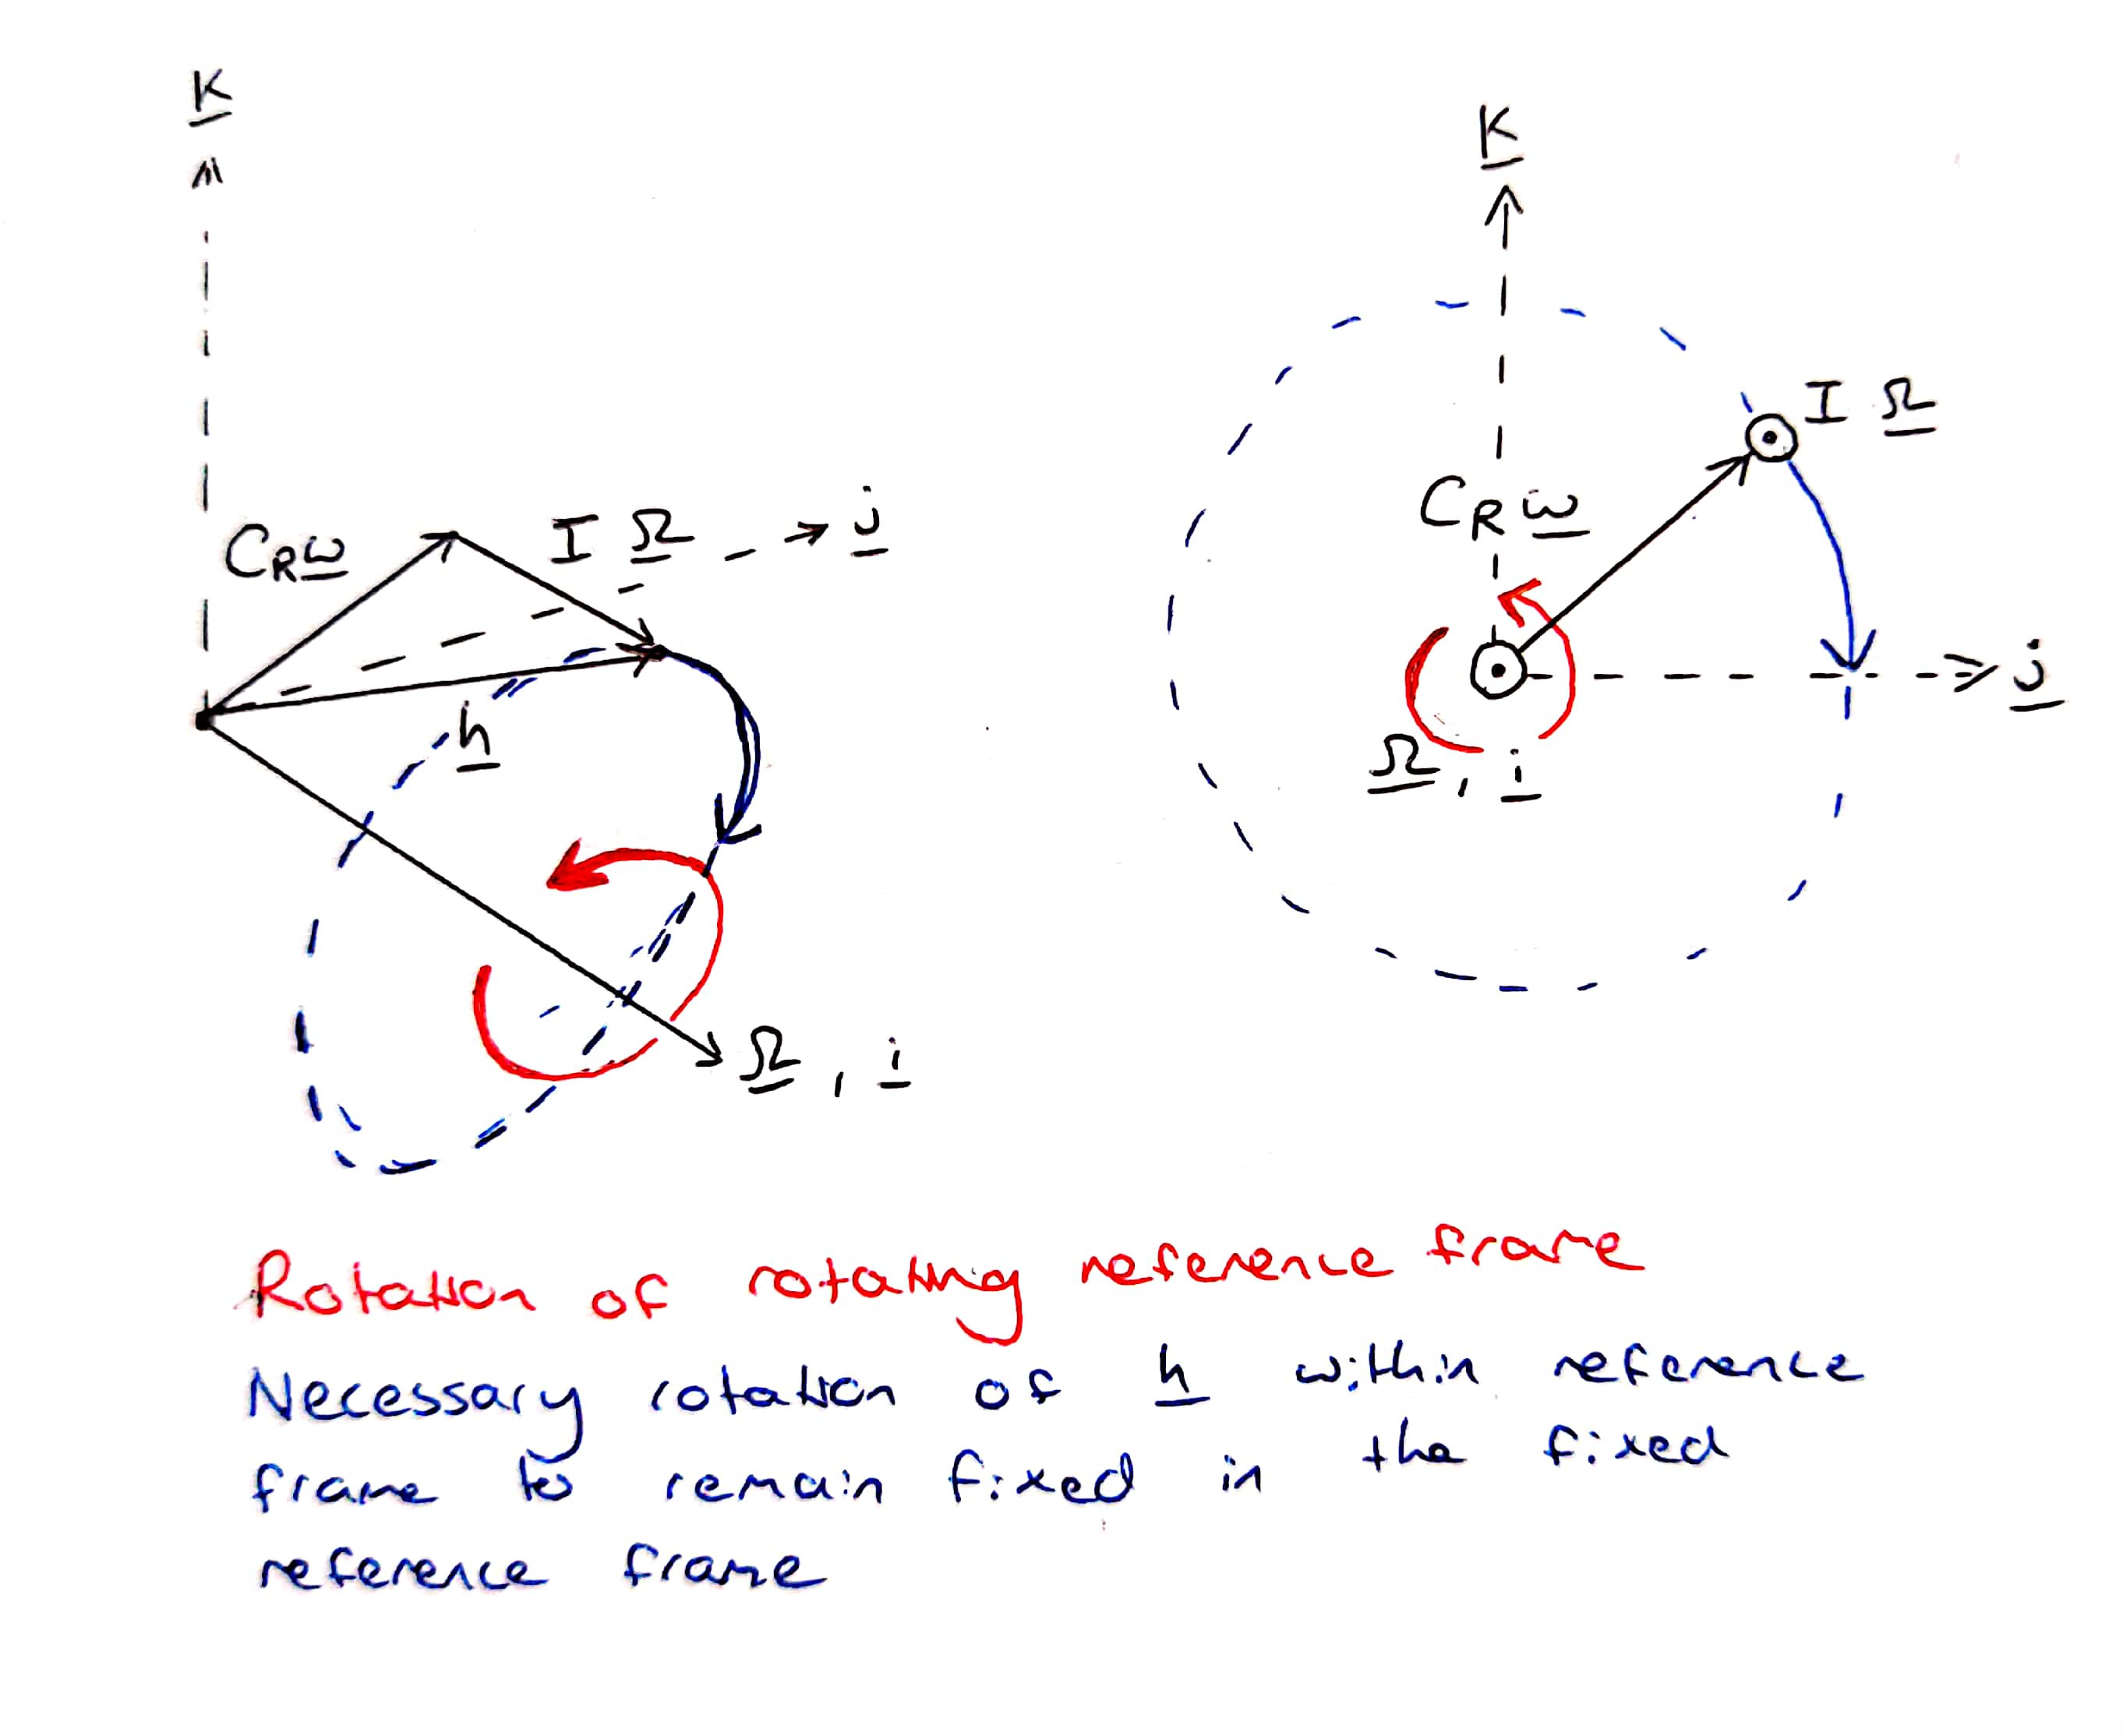 K
K
I Ω
C_R ω
C_R ω
I Ω
j
j
h
Ω, i
Ω, i
Rotation of rotating reference frame
Necessary rotation of h within reference
frame to remain fixed in the fixed
reference frame